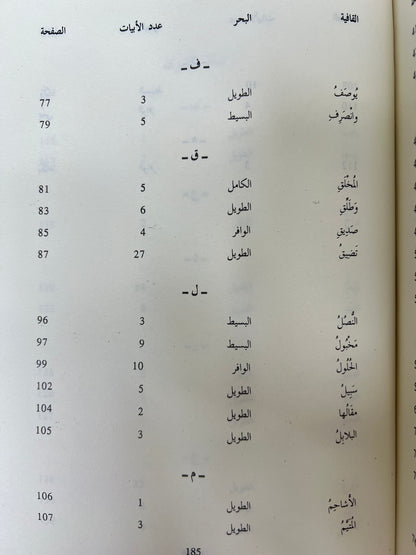 القافية البحر عدد الأبيات الصفحة
ـ ف ـ
يُوصَفُ الطويل 3 77
وانْصَرِفِ البسيط 5 79
ـ ق ـ
المُخْلَقِ الكامل 5 81
وَطَلِّقِ الطويل 6 83
صَدِيقِ الوافر 4 85
تَضِيقُ الطويل 27 87
ـ ل ـ
النُّصُلُ البسيط 3 96
مَخْبُولُ البسيط 9 97
الحُلُولُ الوافر 10 99
سَبِيلُ الطويل 5 102
مقَالُها الطويل 2 104
البلابِلُ الطويل 3 105
ـ م ـ
الأشاحِمُ الطويل 1 106
المُتَيَّمُ الطويل 3 107
185